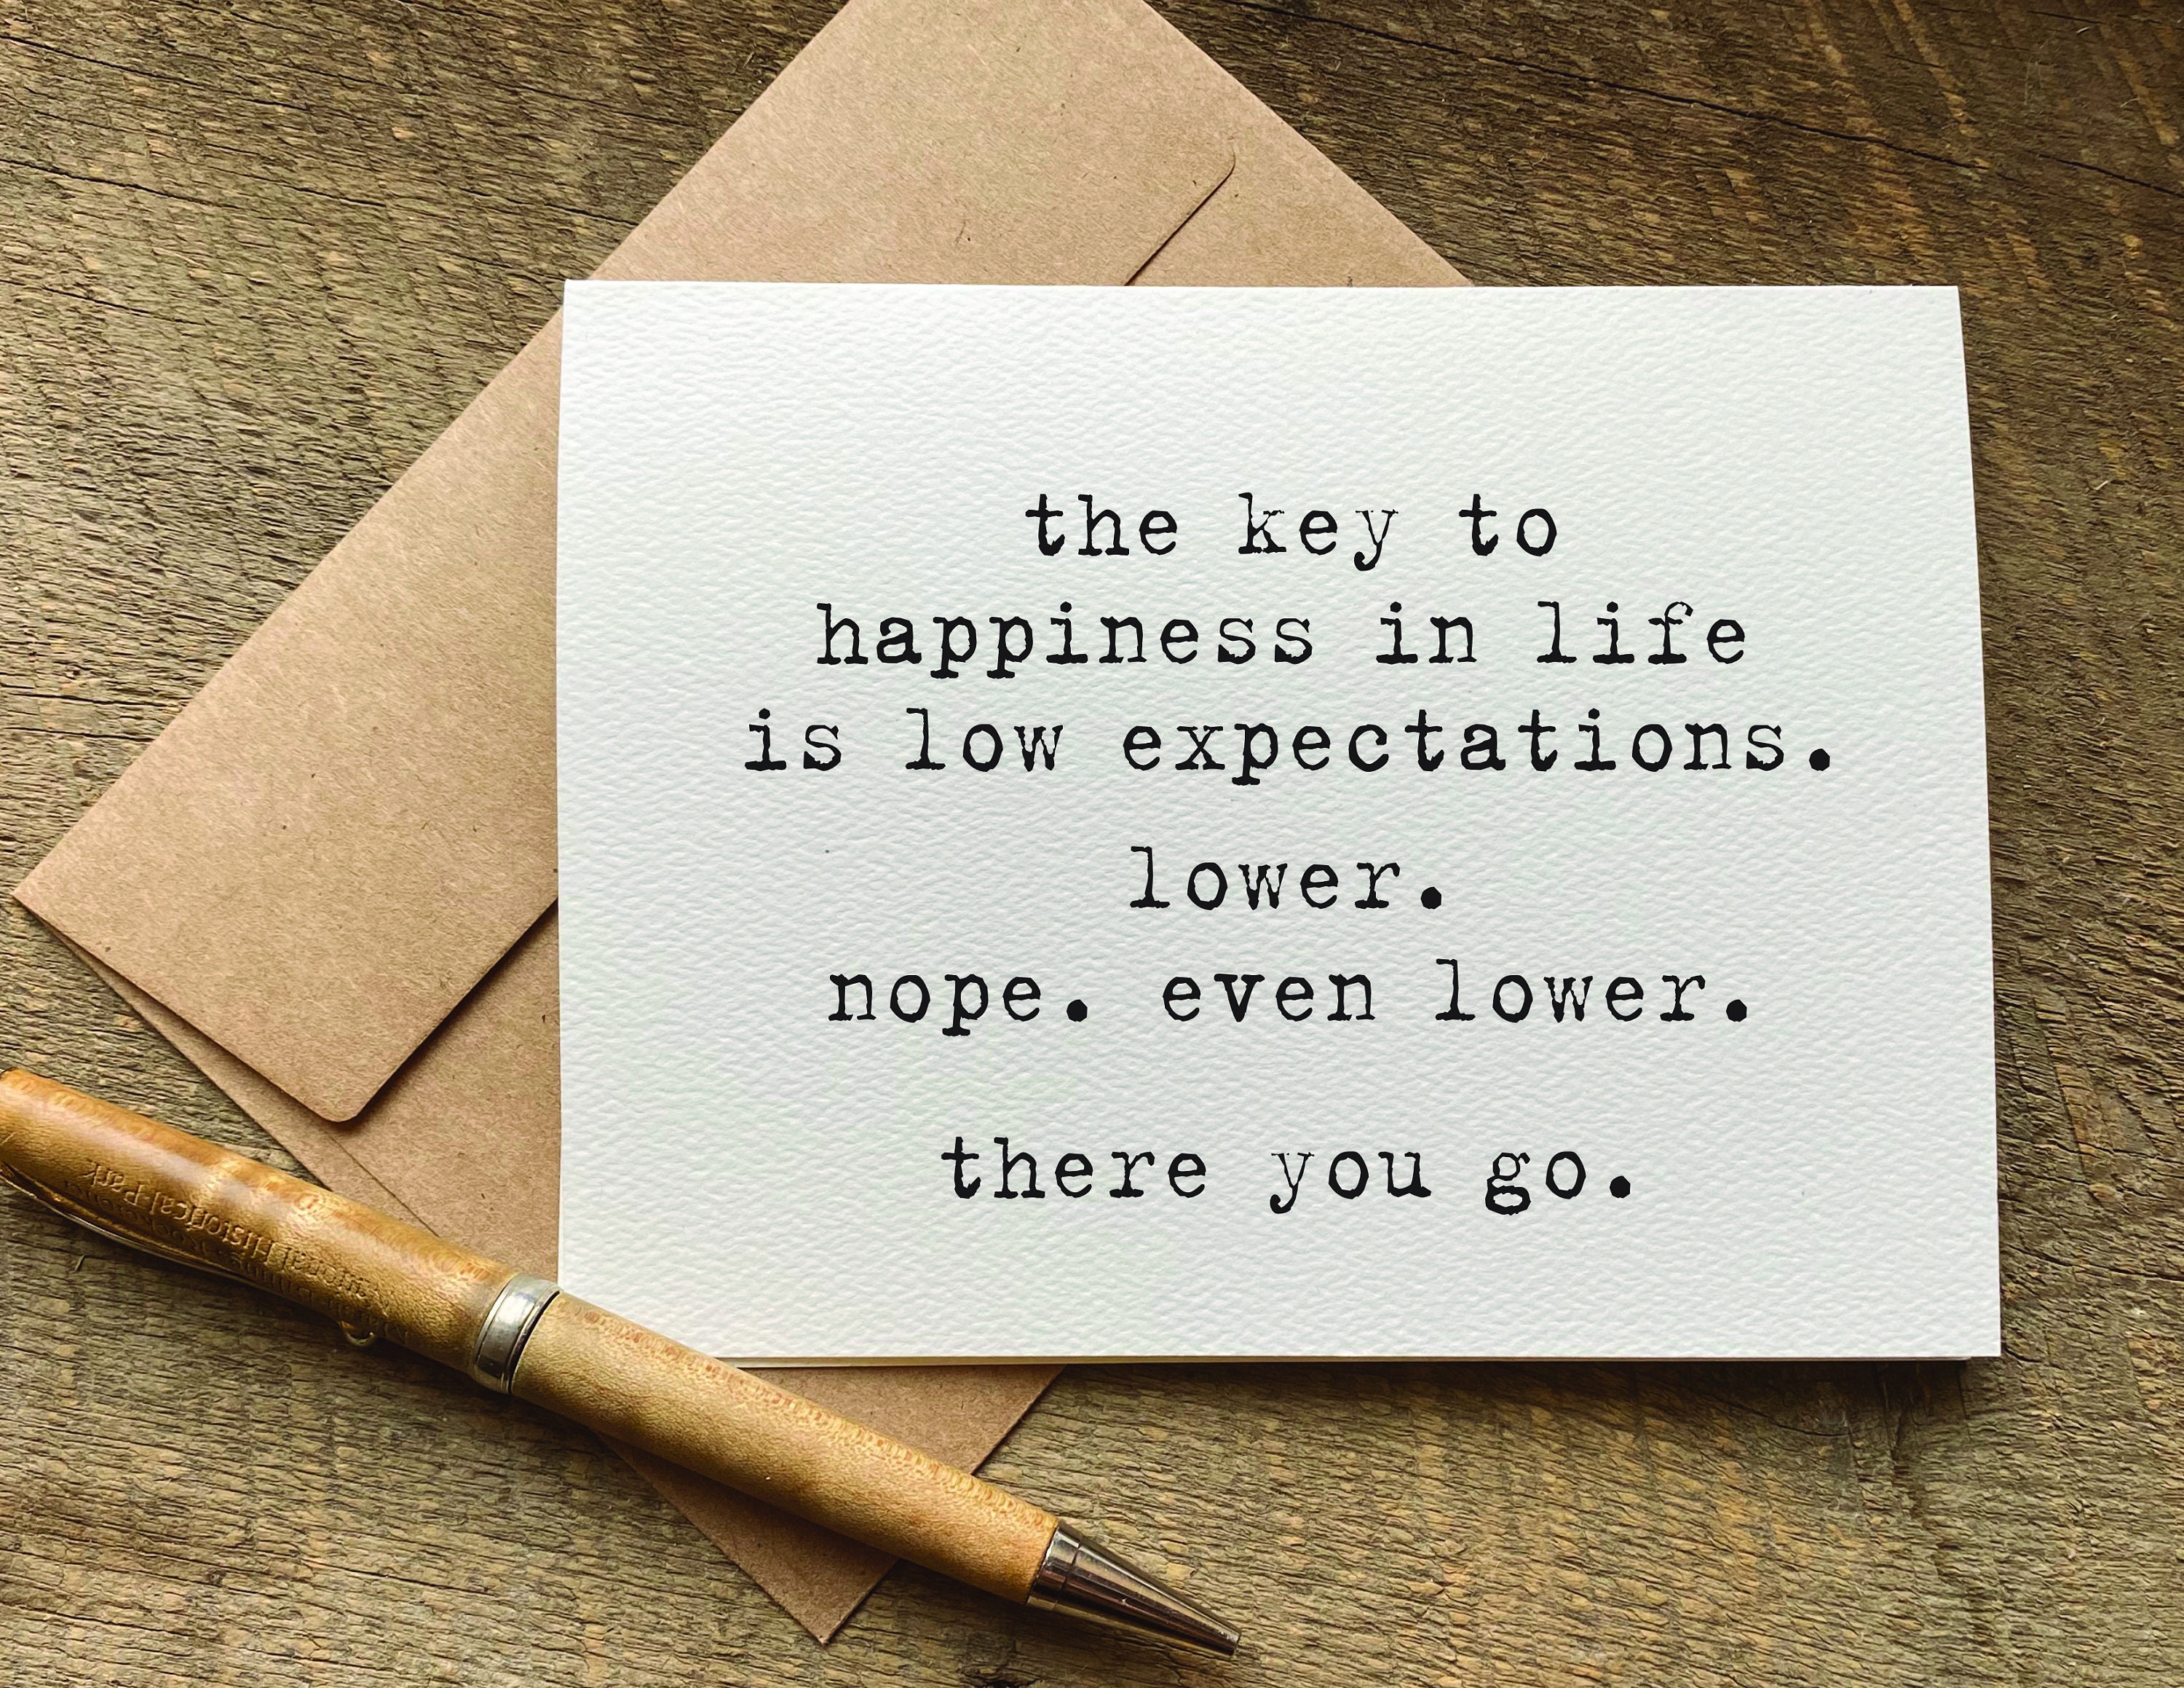 the key to
happiness in life
is low expectations.
lower.
nope. even lower.
there you go.
Historical Park